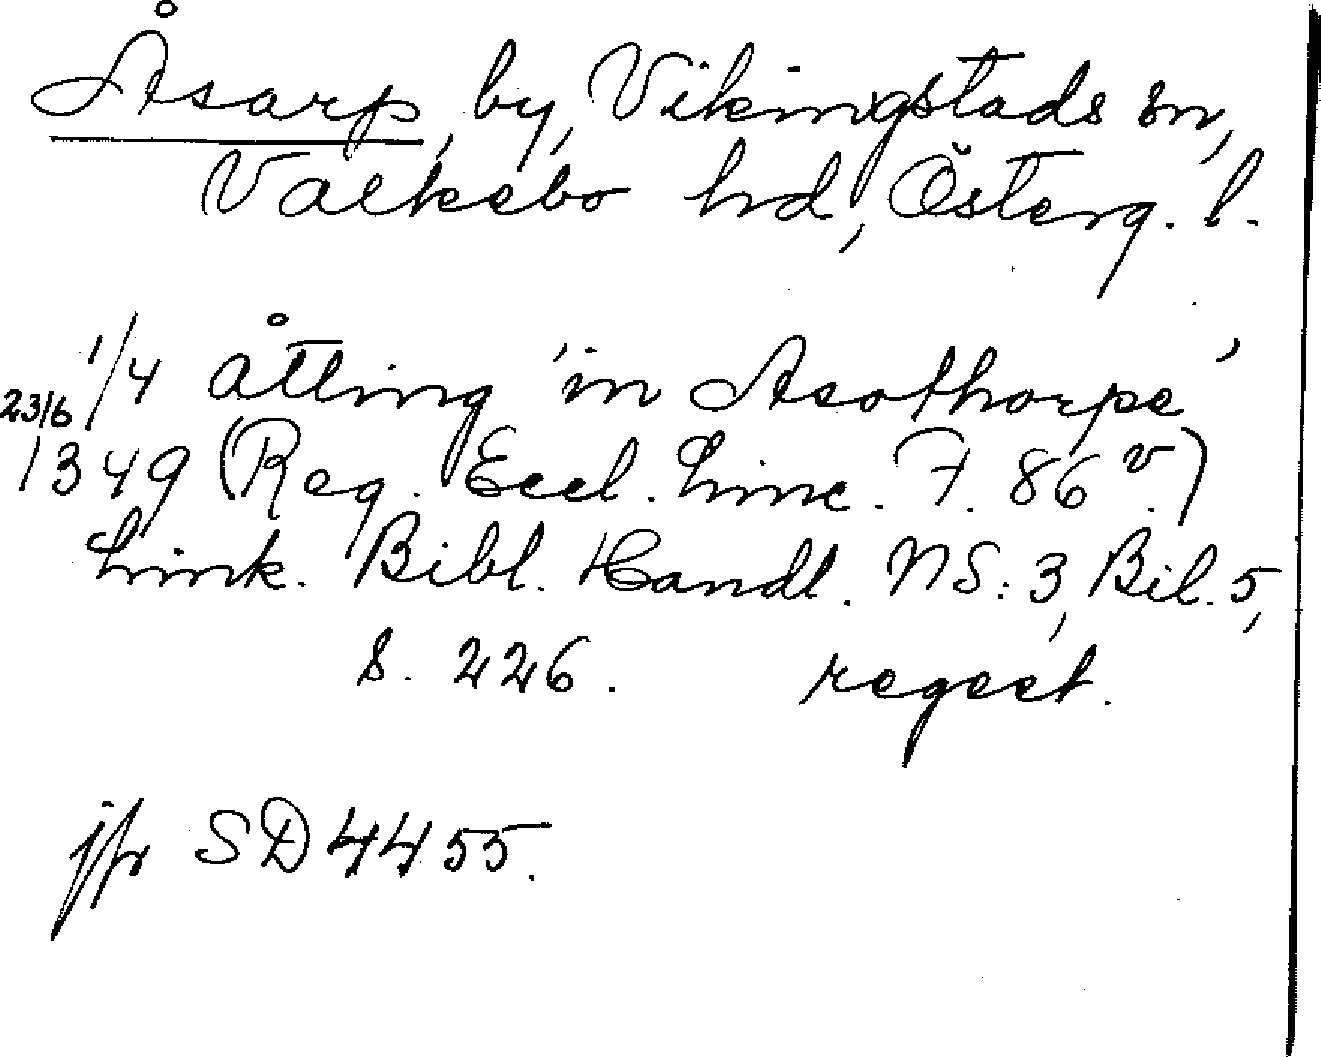 Åsarp, by, Vikingstads sn,
Valkebo hrd, Österg. l.
1/4 åtting 'in Asothorpe'
23/6 1349 (Reg. Eccl. Linc. F. 86 v.)
Link. Bibl. Handl. NS: 3, Bil. 5,
s. 226. regest.
jfr SD 4455.